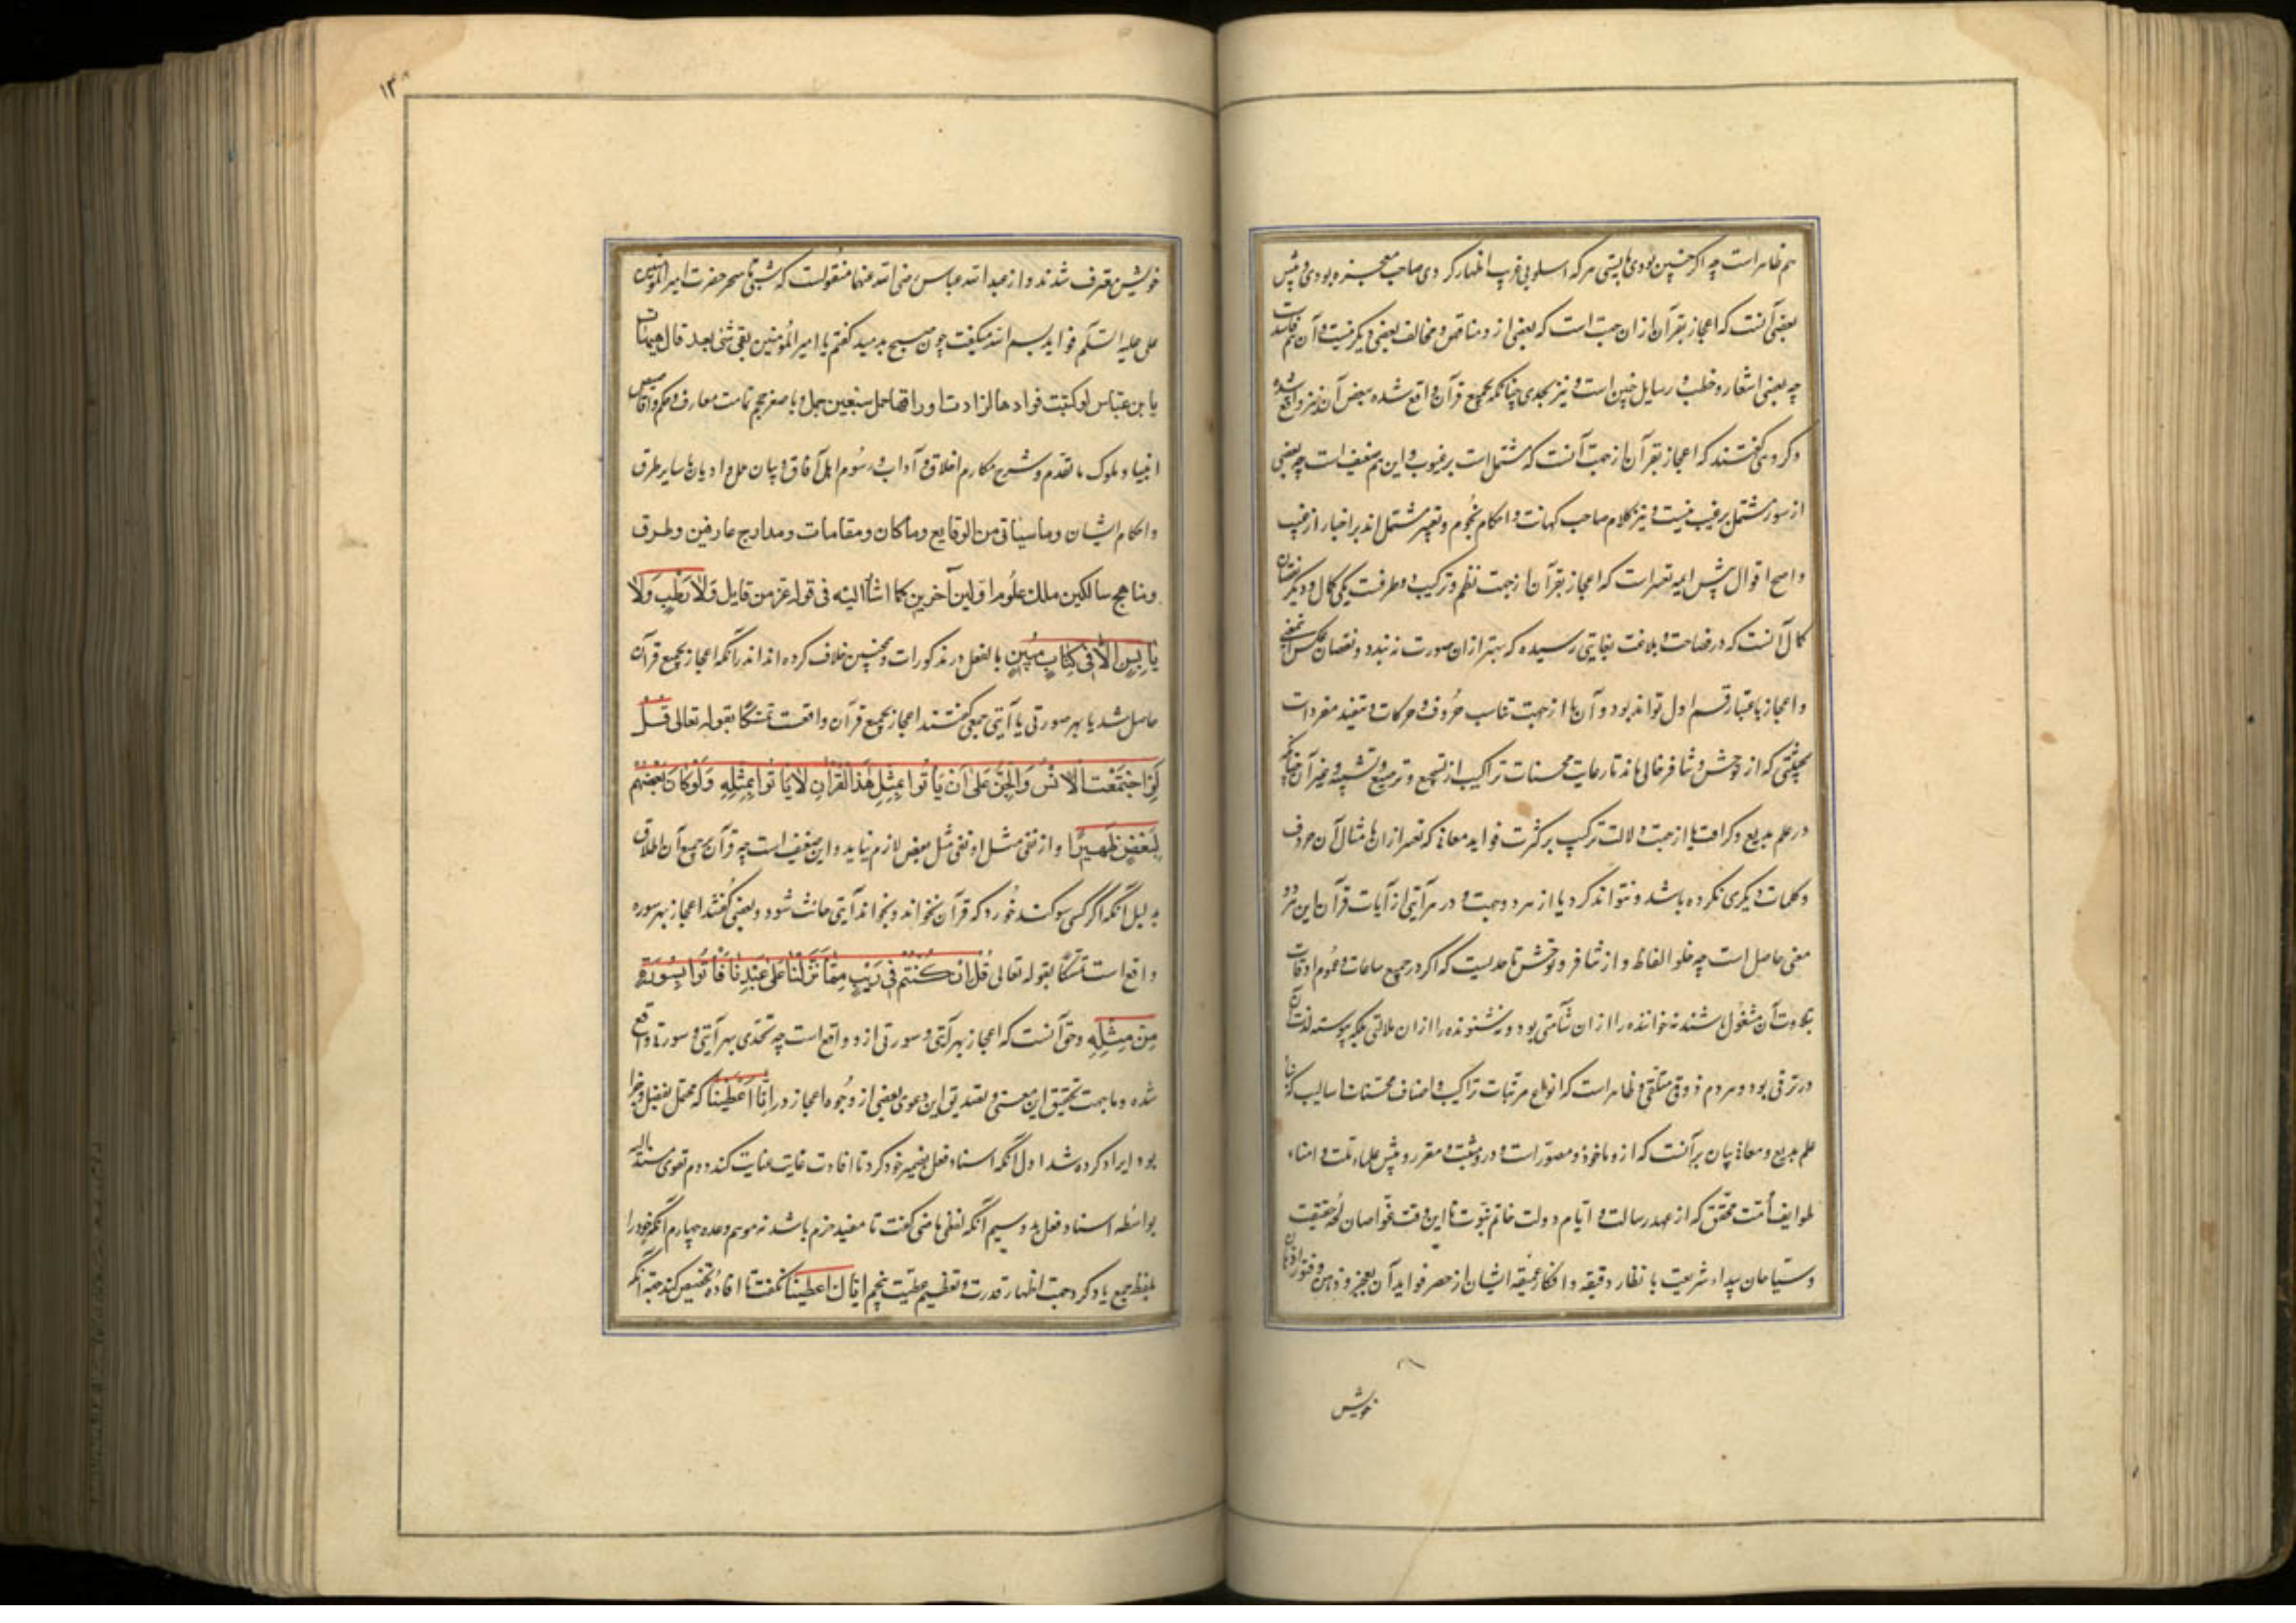 هم ظاهر است چه اگر چنین بودی بایستی هر که اسلوبی غریب اظهار کردی صاحب معجزه بودی و پیش
بعضی آنست که اعجاز بقرآن از ان جهت است که بعضی از و مناقض و مخالف بعضی دیگر نیست و آن هم فاسدست
چه بعضی اشعار و خطب و رسایل چنین است و نیز تحدی چنانکه بجمیع قرآن واقع شده ببعض آن نیز واقع شده
و گروهی گفتند که اعجاز بقرآن از جهت آنست که مشتمل است بر غیوب و این هم ضعیف است چه بعضی
از سور مشتمل بر غیب نیست و نیز کلام صاحب کهانت و احکام نجوم و تعبیر مشتمل اند بر اخبار از غیب
و اصح اقوال پیش ایمه تفسیر است که اعجاز بقرآن از جهت نظم و ترکیب و طرفست یکی کمال و دیگر نقصان
کمال آنست که در فصاحت و بلاغت بغایتی رسیده که بهتر از ان صورت نه بندد و نقصان عکس
و اعجاز باعتبار قسم اول تواند بود و آن یا از جهت تناسب حروف و حرکات و تنفید مفردات
بحیثیتی که از توحش و تنافر خالی ماند تا رعایت محسنات تراکیب از تسجیع و ترصیع و تشبیه و غیر آن چنانکه
در علم بدیع و یا از جهت دلالت ترکیب بر کثرت فواید معانی که تعبیر از ان بامثال آن حروف
و کلمات دیگری نکرده باشد و نتواند کرد یا از هر دو جهت و در هر آیتی از آیات قرآن این هر دو
معنی حاصل است چه خلو الفاظ و از تنافر و توحش تا حدیست که اگر در جمیع ساعات و عموم اوقات
بتلاوت آن مشغول باشند نه خواننده را از ان سآمتی بود و نه شنونده را از ان ملالتی بلکه پیوسته لذت آن
در ترقی بود و هر دم ذوقی متلقی و ظاهر است که انواع مرتبات تراکیب و اصناف محسنات اسالیب که
علم بدیع و معانی بیان بر آنست که از و ماخوذ و مصور است و در و مثبت و مقرر و پیش علماء ملت و امناء
طوایف امت محقق که از عهد رسالت و ایام دولت خاتم نبوت تا این وقت غواصان لجه حقیقت
و سیاحان بیداء شریعت با نظار دقیقه و افکار عمیقه ایشان از حصر فواید آن بعجز و فتور اذهان
خویش
١٣
خویش معترف شدند و از عبد الله عباس رضی الله عنهما منقولست که شبی تا سحر حضرت امیر المؤمنین
علی علیه السلم فواید بسم الله میگفت چون صبح بدمید گفتم یا امیر المؤمنین بقی شیٔ بعد قال هیهات
یا بن عباس لو کتبت فوادها لزادت اوراقها حمل سبعین جمل و با صغر حجم تمامت معارف و حکم و اقاصیص
انبیا و ملوک ما تقدم و شرح مکارم اخلاق و آداب و رسوم اهل آفاق و بیان ملل و ادیان با سایر طرق
و احکام ایشان و ما سیاتی من الوقایع و ما کان و مقامات و مدارج عارفین و طرق
و مناهج سالکین ملک علوم اولین آخرین کما اشار الیه فی قوله عز من قایل وَلَا رَطْبٍ وَلَا
یَابِسٍ اِلَّا فِی کِتَابٍ مُبِینٍ بالفعل در مذکورات و همچنین خلاف کرده اند اندر آنکه اعجاز بجمیع قرآن
حاصل شد یا بهر صورتی یا آیتی جمعی گفتند اعجاز بجمیع قرآن واقعست تمسکا بقوله تعالی قُلْ
لَئِنِ اجْتَمَعَتِ الْاِنْسُ وَالْجِنُّ عَلٰی اَنْ یَأْتُوا بِمِثْلِ هٰذَا الْقُرْآنِ لَا یَأْتُوا بِمِثْلِهِ وَلَوْ کَانَ بَعْضُهُمْ
لِبَعْضٍ ظَهِیرًا و از نفی مثل او نفی مثل بعض لازم نیاید و این ضعیف است چه قرآن بر جمیع آن اطلاق
بدلیل آنکه اگر کسی سوگند خورد که قرآن نخواند و بخواند آیتی حانث شود و بعضی گفتند اعجاز بهر سوره
واقع است تمسکا بقوله تعالی قُلْ اِنْ کُنْتُمْ فِی رَیْبٍ مِمَّا نَزَّلْنَا عَلٰی عَبْدِنَا فَأْتُوا بِسُورَةٍ
مِنْ مِثْلِهِ و حق آنست که اعجاز بهر آیتی و سورتی از و واقع است چه تحدی بهر آیتی و سورتی واقع
شده و ما بجهت تحقیق این معنی و تصدیق این دعوی بعضی از وجوه اعجاز در اِنَّا اَعْطَیْنَا که محتمل
بود ایراد کرده شد اول آنکه اسناد فعل بضمیر خود کرد تا افادت غایت عنایت کند دوم تقوی
بواسطه اسناد فعل بد و سیم آنکه لفظ ماضی گفت تا مفید جزم باشد نه موهم وعده چهارم آنکه خود را
بلفظ جمع یاد کرد جهت اظهار قدرت و تعظیم عطیت پنجم ایاک اعطینا نگفت تا افاده تخصیص کند آنکه